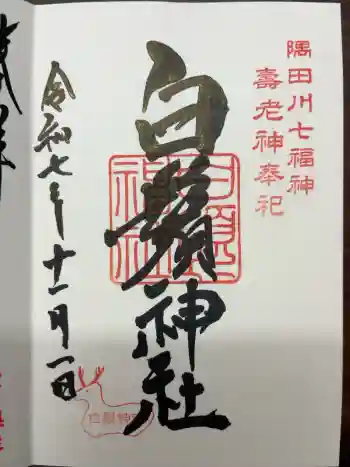 隅田川七福神
壽老神奉祀
白鬚神社
白鬚神社
令和七年十一月一日
白鬚神社